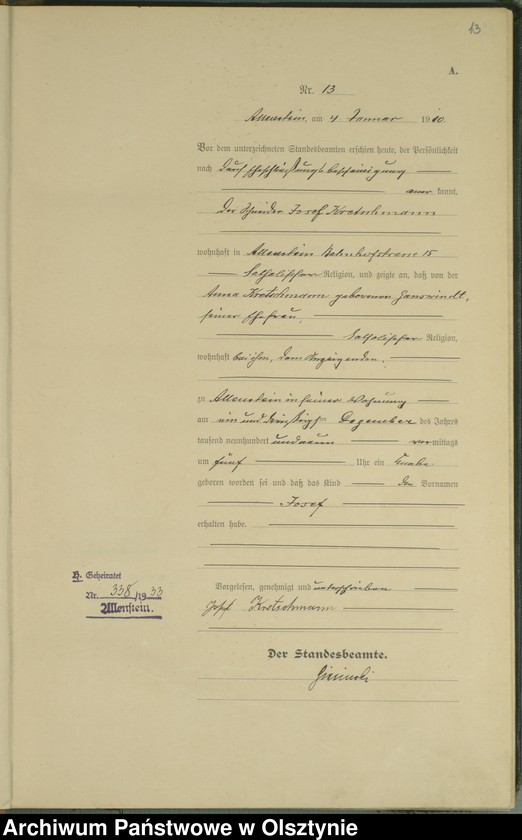 13
A.
Nr. 13
Allenstein, am 4 Januar 1910.
Vor dem unterzeichneten Standesbeamten erschien heute, der Persönlichkeit
nach durch Eheschließungsbescheinigung
aner kannt,
der Schneider Josef Kretschmann
wohnhaft in Allenstein Bahnhofstrasse 15
katholischer Religion, und zeigte an, daß von der
Anna Kretschmann geborenen
seiner Ehefrau,
katholischer Religion,
wohnhaft bei ihm, dem Anzeigenden,
zu Allenstein in seiner Wohnung
am ein und dreißigsten Dezember des Jahres
tausend neunhundert und neun mittags
um fünf Uhr ein Knabe
geboren worden sei und daß das Kind den Vornamen
Josef
erhalten habe.
Vorgelesen, genehmigt und unterschrieben
Josef Kretschmann
Der Standesbeamte.
H. Geheiratet
Nr. 338/1933
Allenstein.
Archiwum Państwowe w Olsztynie